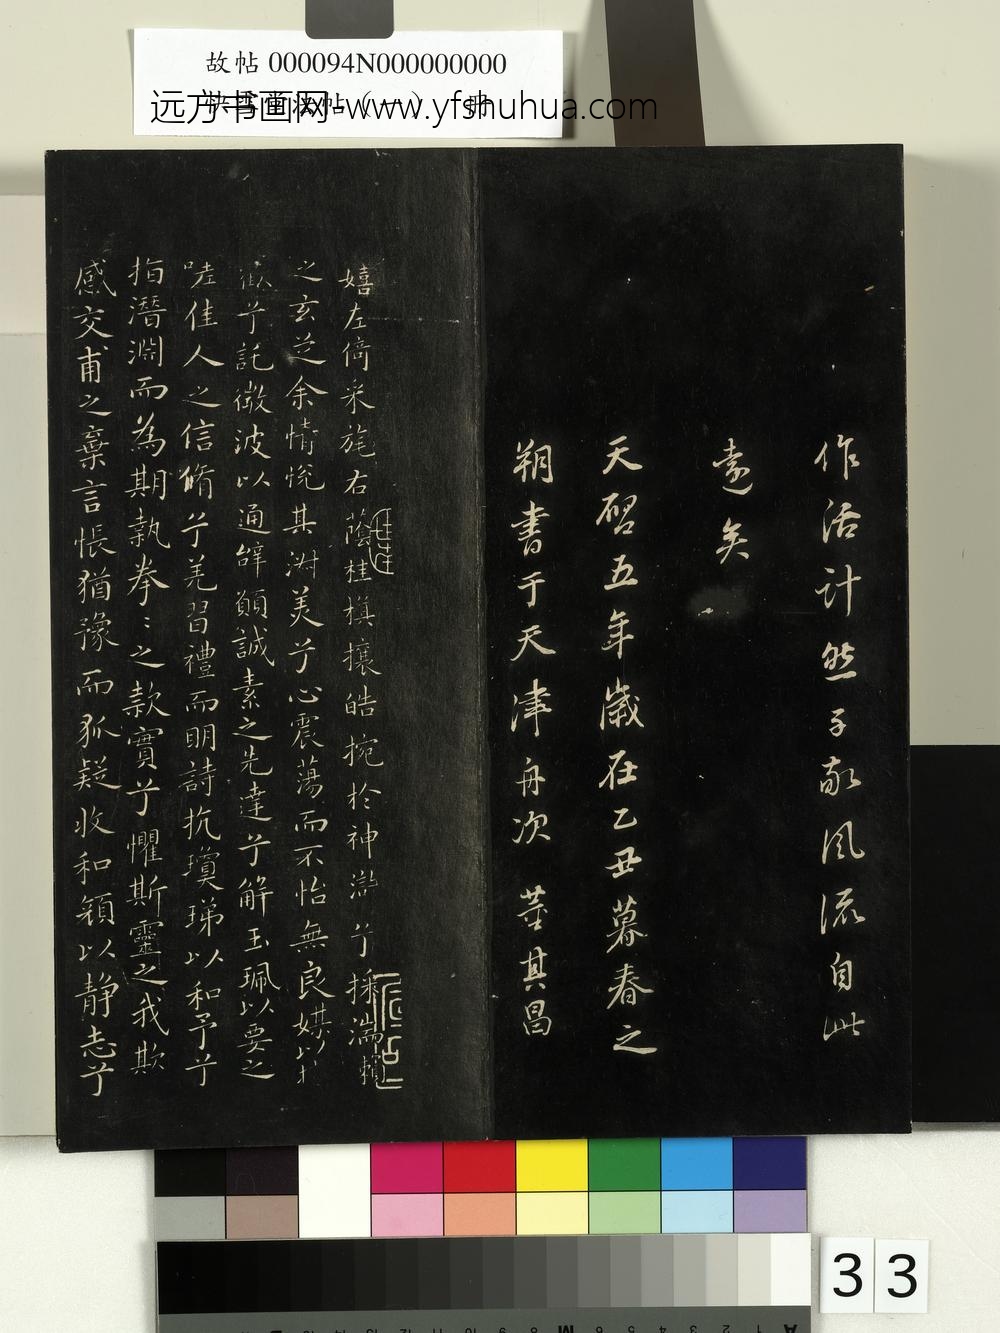 故帖 000094N000000000
远方书画网-www.yfshuhua.com
作活计然子敬風流自此
遠矣
天啓五年歲在乙丑暮春之
朔書于天津舟次 董其昌
嬉左倚采旄右蔭桂旗攘皓捥於神滸兮採湍瀨
之玄芝余情悅其淑美兮心震蕩而不怡無良媒以
歡兮託微波以通辭願誠素之先達兮解玉珮以要之
嗟佳人之信脩兮羌習禮而明詩抗瓊珶以和予兮
指潛淵而為期執拳〻之款實兮懼斯靈之我欺
感交甫之棄言悵猶豫而狐疑收和顏以静志兮
33